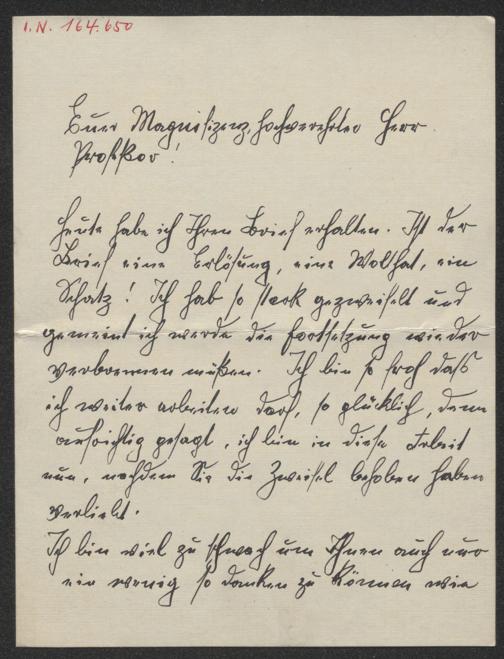 I.N. 164.650
Euer Magnifizenz, hochverehrter Herr
Professor!
Heute habe ich Ihren Brief erhalten. Ist der
Brief eine Erlösung, eine Wolthat, ein
Schatz! Ich hab so stark gezweifelt und
gemeint ich werde die Fortsetzung wieder
verbrennen müßen. Ich bin so froh dass
ich weiter arbeiten darf, so glücklich, denn
aufrichtig gesagt, ich bin in diese Arbeit
nun, nachdem Sie die Zweifel behoben haben
verliebt.
Ich bin viel zu schwach um Ihnen auch nur
ein wenig so danken zu können wie